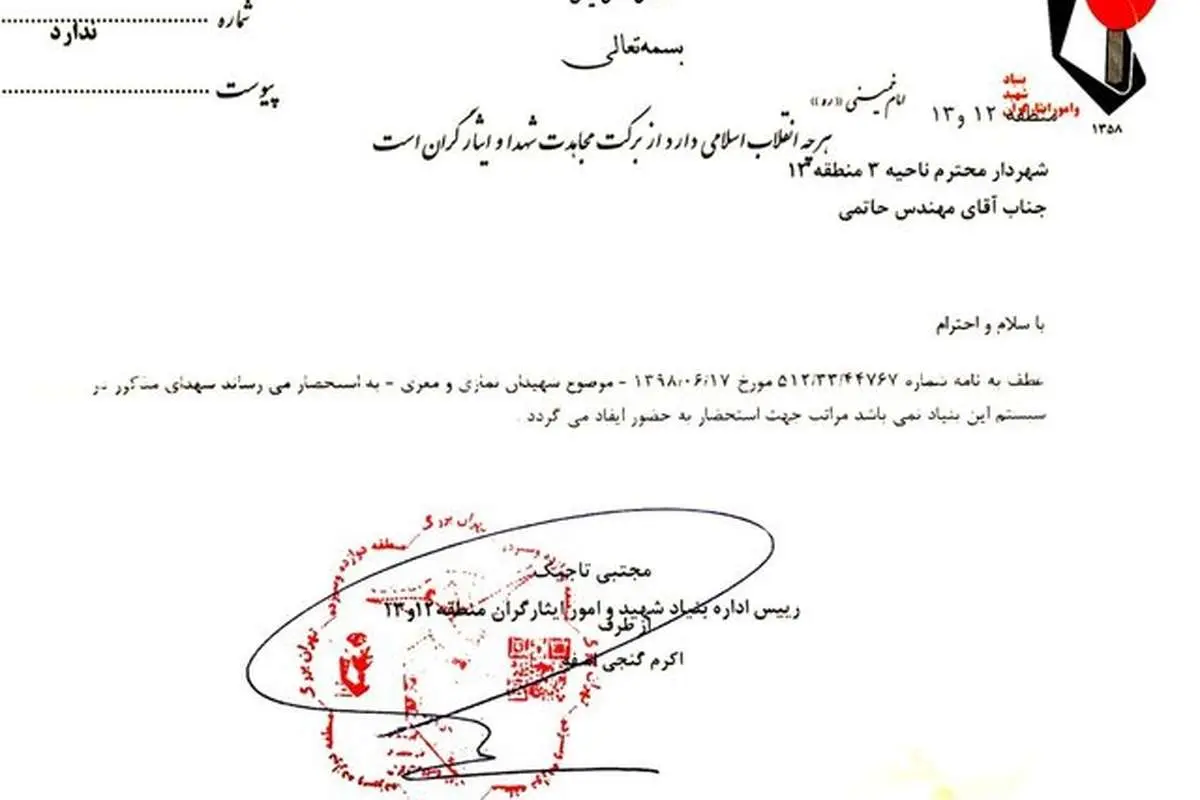 شماره
ندارد
پیوست
بسمه‌تعالی
امام خمینی «ره»
هرچه انقلاب اسلامی دارد از برکت مجاهدت شهدا و ایثارگران است
بنیاد
شهید
وامور ایثارگران
۱۳۵۸
منطقه ۱۲ و۱۳
شهردار محترم ناحیه ۳ منطقه ۱۲
جناب آقای مهندس حاتمی
با سلام و احترام
عطف به نامه شماره ۵۱۲/۳۳/۴۴۷۶۷ مورخ ۱۳۹۸/۰۶/۱۷ - موضوع شهیدان نمازی و معزی - به استحضار می رساند شهدای مذکور در
سیستم این بنیاد نمی باشد مراتب جهت استحضار به حضور ایفاد می گردد .
مجتبی تاجیک
رییس اداره بنیاد شهید و امور ایثارگران منطقه۱۲و۱۳
از طرف
اکرم گنجی
تهران بزرگ
منطقه دوازده وسیزده
تهران بزرگ
منطقه دوازده وسیزده